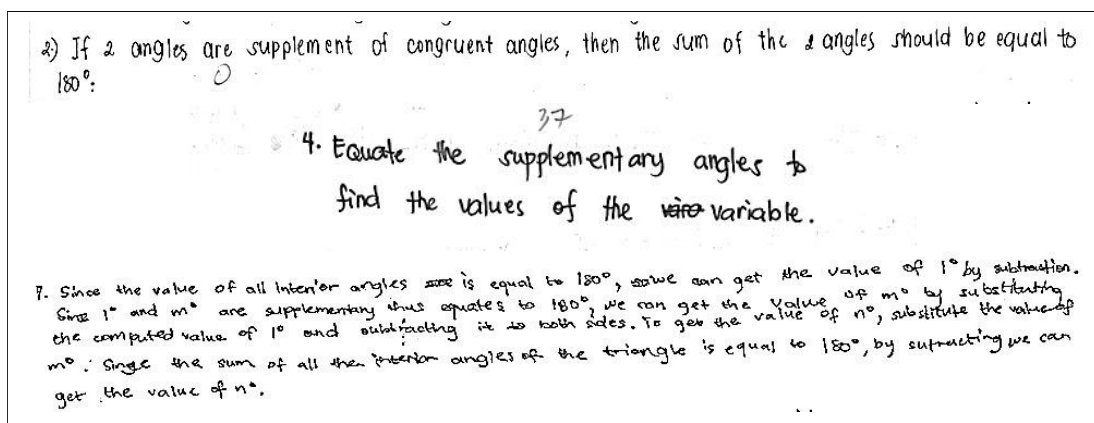 2) If 2 angles are supplement of congruent angles, then the sum of the 2 angles should be equal to
180°:
0
37
4. Equate the supplementary angles to
find the values of the variable.
7. Since the value of all interior angles is equal to 180°, we can get the value of l° by subtraction.
Since l° and m° are supplementary thus equates to 180°, we can get the value of m° by substituting
the computed value of l° and subtracting it to both sides. To get the value of n°, substitute the value of
m°. Singe the sum of all the interior angles of the triangle is equal to 180°, by sutracting we can
get the value of n°.